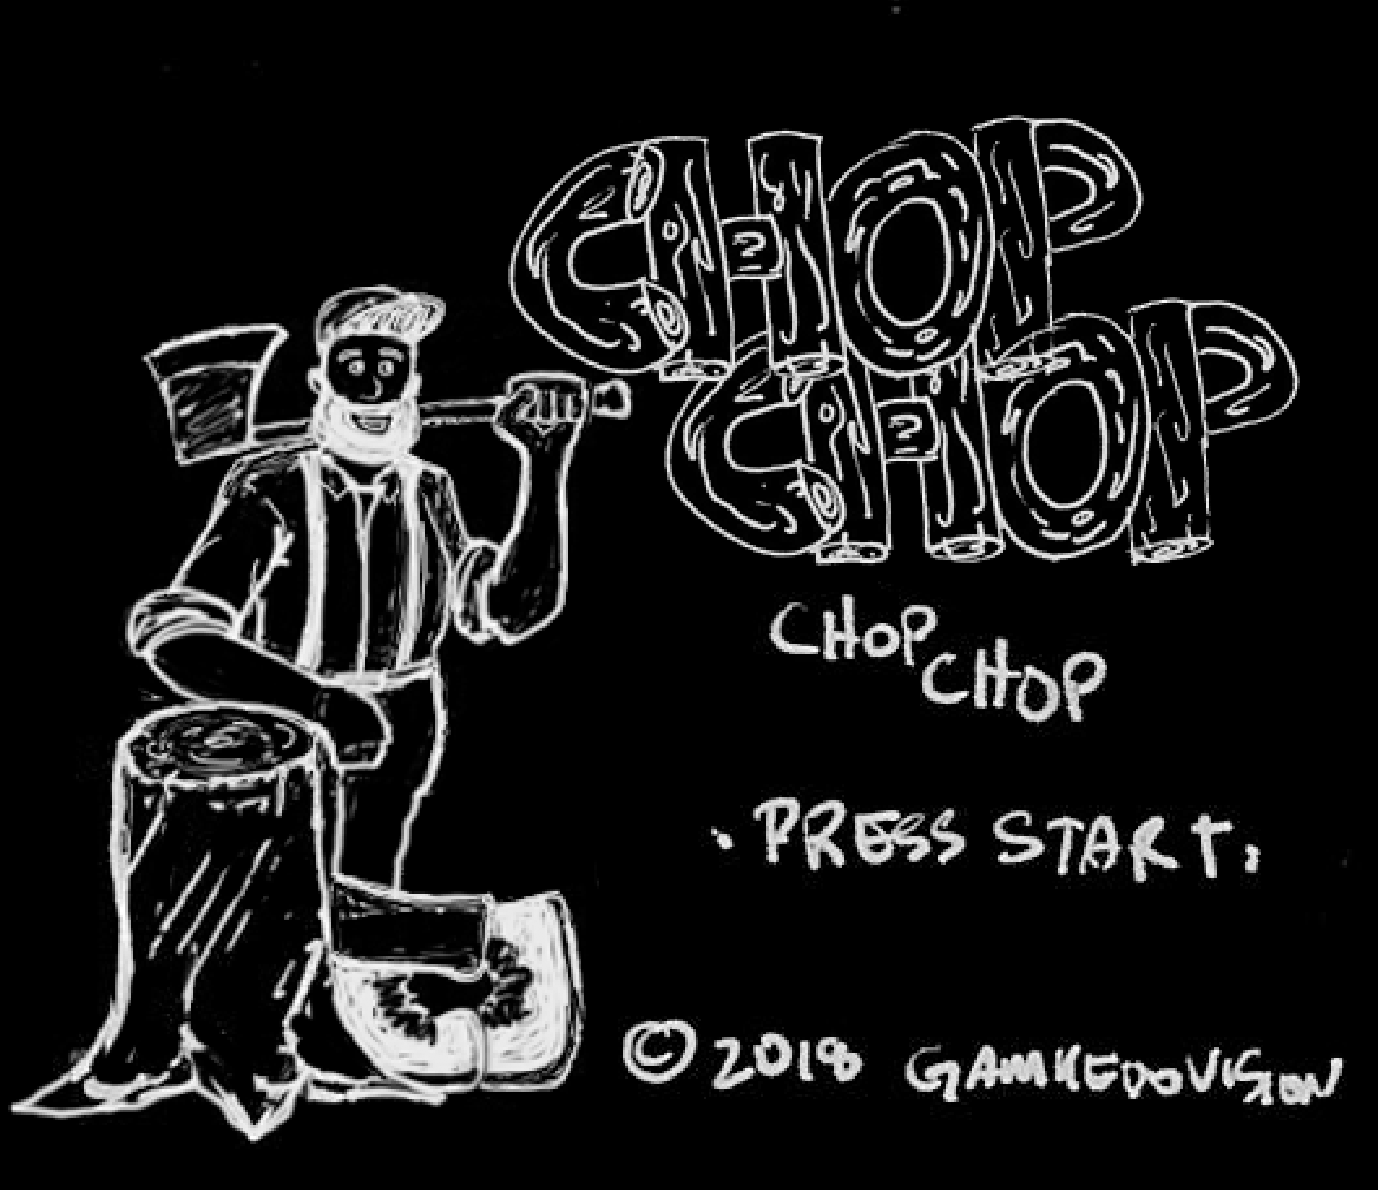 CHOP
CHOP
CHOP
CHOP
. PRESS START.
© 2018 GAMKEDOVISION